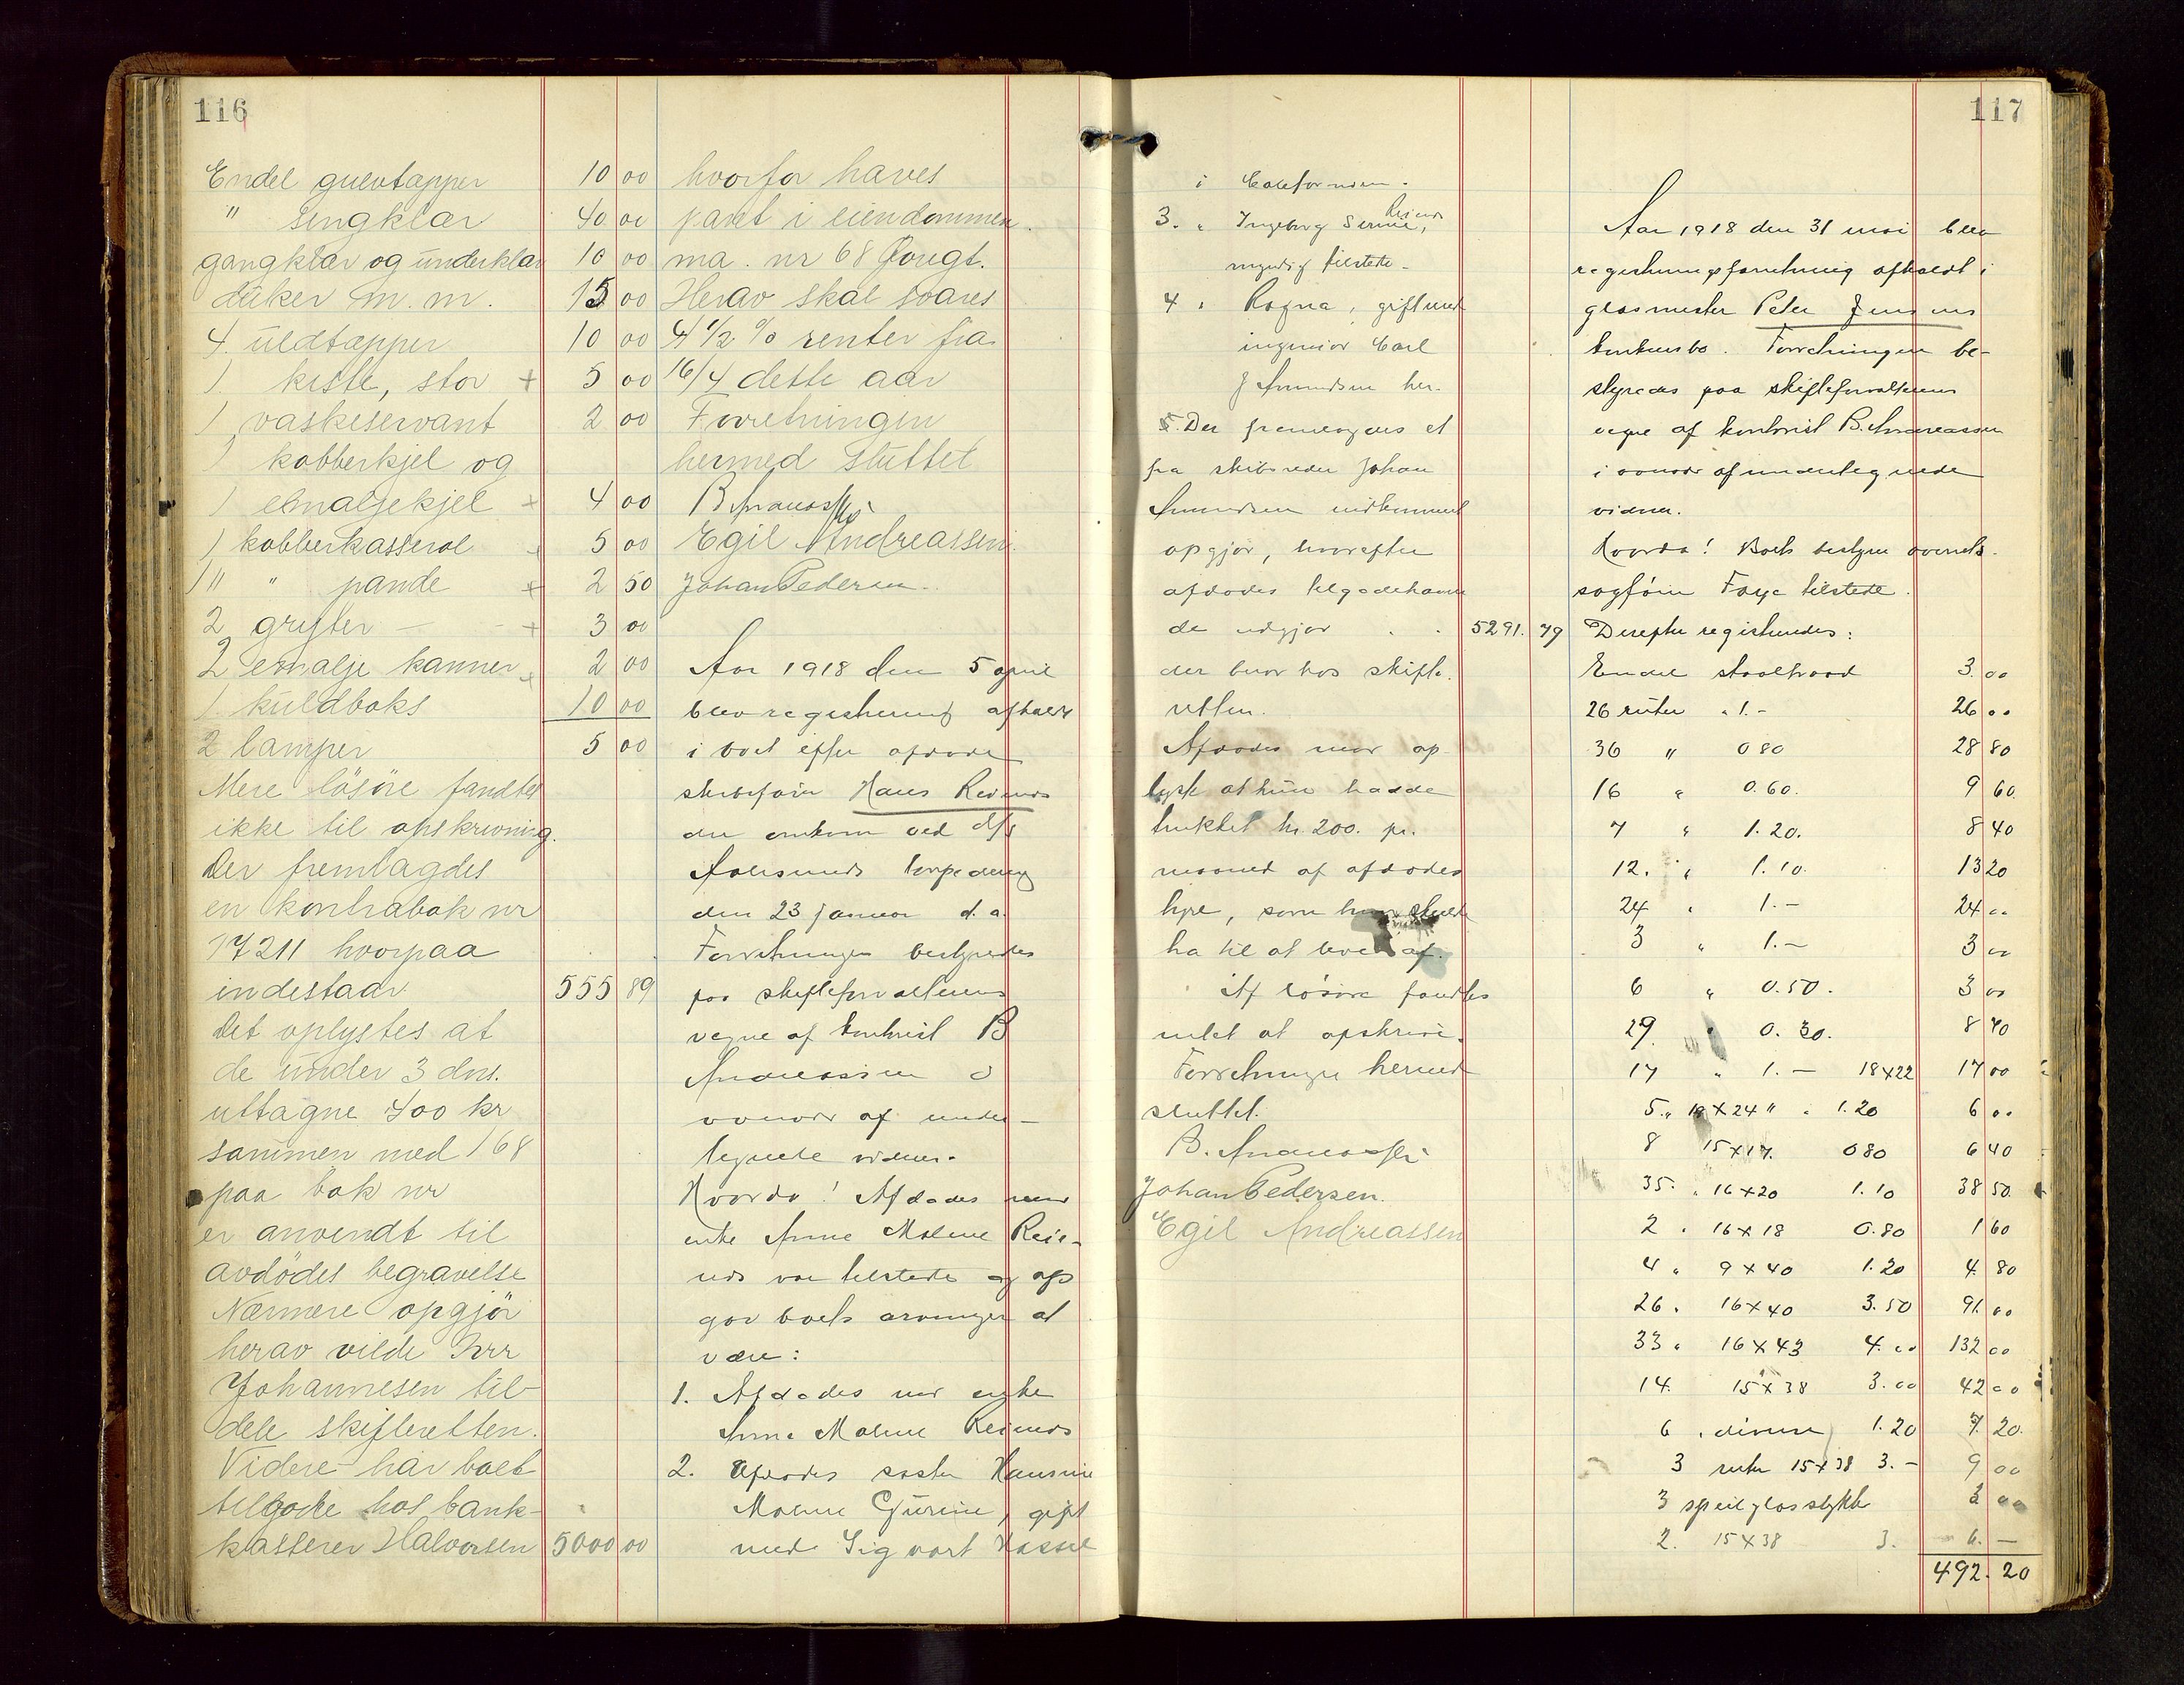 116
Endel gulvtapper 10 00
" sengklær 40 00
gangklær og underklær 10 00
duker m.m. 15 00
4 uldtapper 10 00
1 kiste, stor + 5 00
1 vaskeservant 2 00
1 kobberkjel og
1 emaljekjel + 4 00
1 kobberkasserol + 5 00
1 " " pande + 2 50
2 gryter — - + 3 00
2 emalje kanner + 2 00
1 kuldboks 10 00
2 lamper 5 00
Mere lösöre fandtes
ikke til opskrivning.
Der fremlagdes
en kontrabok nr
17211 hvorpaa
indestaar 555 89
Det oplystes at
de under 3 dns.
uttagne 400 kr
sammen med 168
paa bok nr
er anvendt til
avdödes begravelse
Nærmere opgjör
herav vilde Ivr
Johannesen til-
dele skifteretten.
Videre har boet
tilgode hos bank-
kasserer Halvorsen 5000 00
hvorfor haves
pant i eiendommen.
ma. nr 68 Jongt.
Herav skal svares
4 1/2 % renter fra
16/4 dette aar
Forretningen
hermed sluttet
B Andreassen
Egil Andreassen.
Johan Pedersen.
Aar 1918 den 5 april
blev registrering afholdt
i boet efter afdøde
skibsfører Hans Reiners
der omkom ved d/s
Aalesunds torpedering
den 23 januar d.a.
Forretningen bestyredes
paa skifteforvalterens
vegne af kontorist B
Andreassen i
overvær af under-
tegnede vidner.
Hvorda! Afdødes mor
enke Anne Malene Rei-
ners var tilstede og op
gav boets arvinger at
være:
1. Afdødes mor enke
Anne Malene Reiners
2. Afdødes søster Hansine
Malene Gurine, gift
med Sigvart Hassel
117
i Californien.
3. " Ingeborg Serine, Reiners
myndig tilstede.
4 " Ragna, gift med
ingeniør Carl
J Amundsen her.
5. Der fremlagdes et
fra skibsreder Johan
Amundsen indkommet
opgjør, hvorefter
afdødes tilgodehaven
de udgjør . . 5291. 79
der beror hos skifte-
retten.
Afdødes mor op-
lyste at hun hadde
trukket kr. 200. pr.
maaned af afdødes
hyre, som hun skulde
ha til at leve af.
Af løsøre fandtes
intet at opskrive.
Forretningen hermed
sluttet.
B. Andreassen
Johan Pedersen.
Egil Andreassen
Aar 1918 den 31 mai blev
registreringsforretning afholdt i
glasmester Peter Jensens
konkursbo. Forretningen be-
styredes paa skifteforvalterens
vegne af kontorist B. Andreassen
i overvær af undertegnede
vidner.
Hvorda! Boets bestyrer overrets-
sagfører Faye tilstede.
Derefter registreredes:
Endel staaltraad 3. 00
26 ruter " 1.- 26 00
36 " 0 80 28 80
16 " 0.60. 9 60
7 " 1.20. 8 40
12. " 1.10. 13 20
24 " 1.- 24 00
3 " 1.- 3 00
6 " 0.50. 3 00
29. " 0.30. 8 70
17 " 1.- 18x22 17 00
5 " 18x24 " " 1.20 6 00
8 15x17. 0 80 6 40
35. " 16x20 1.10 38 50
2 " 16x18 0.80 1 60
4 " 9x40 1.20 4 80
26. 16x40 3.50 91 00
33 " 16x43 4.00 132 00
14. 15x38 3.00 42 00
6 " diverse 1.20 7 20.
3 ruter 15x38 3.- 9 00
3 speilglasstykker 2 00
2. 15x38 3. 6. —
492. 20